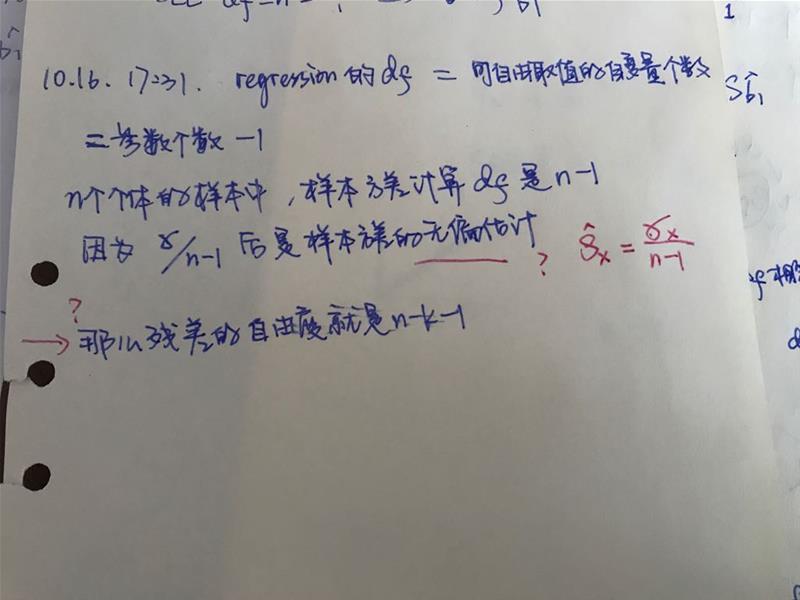 1
10.16. 17:31. regression的df = 可自由取值的自变量个数
= 参数个数 -1
n个个体的样本中，样本方差计算df是n-1
因为 σ/n-1 后是样本方差的无偏估计 ? Ŝx = σx/n-1
?
→ 那么残差的自由度就是n-k-1
Sb̂1